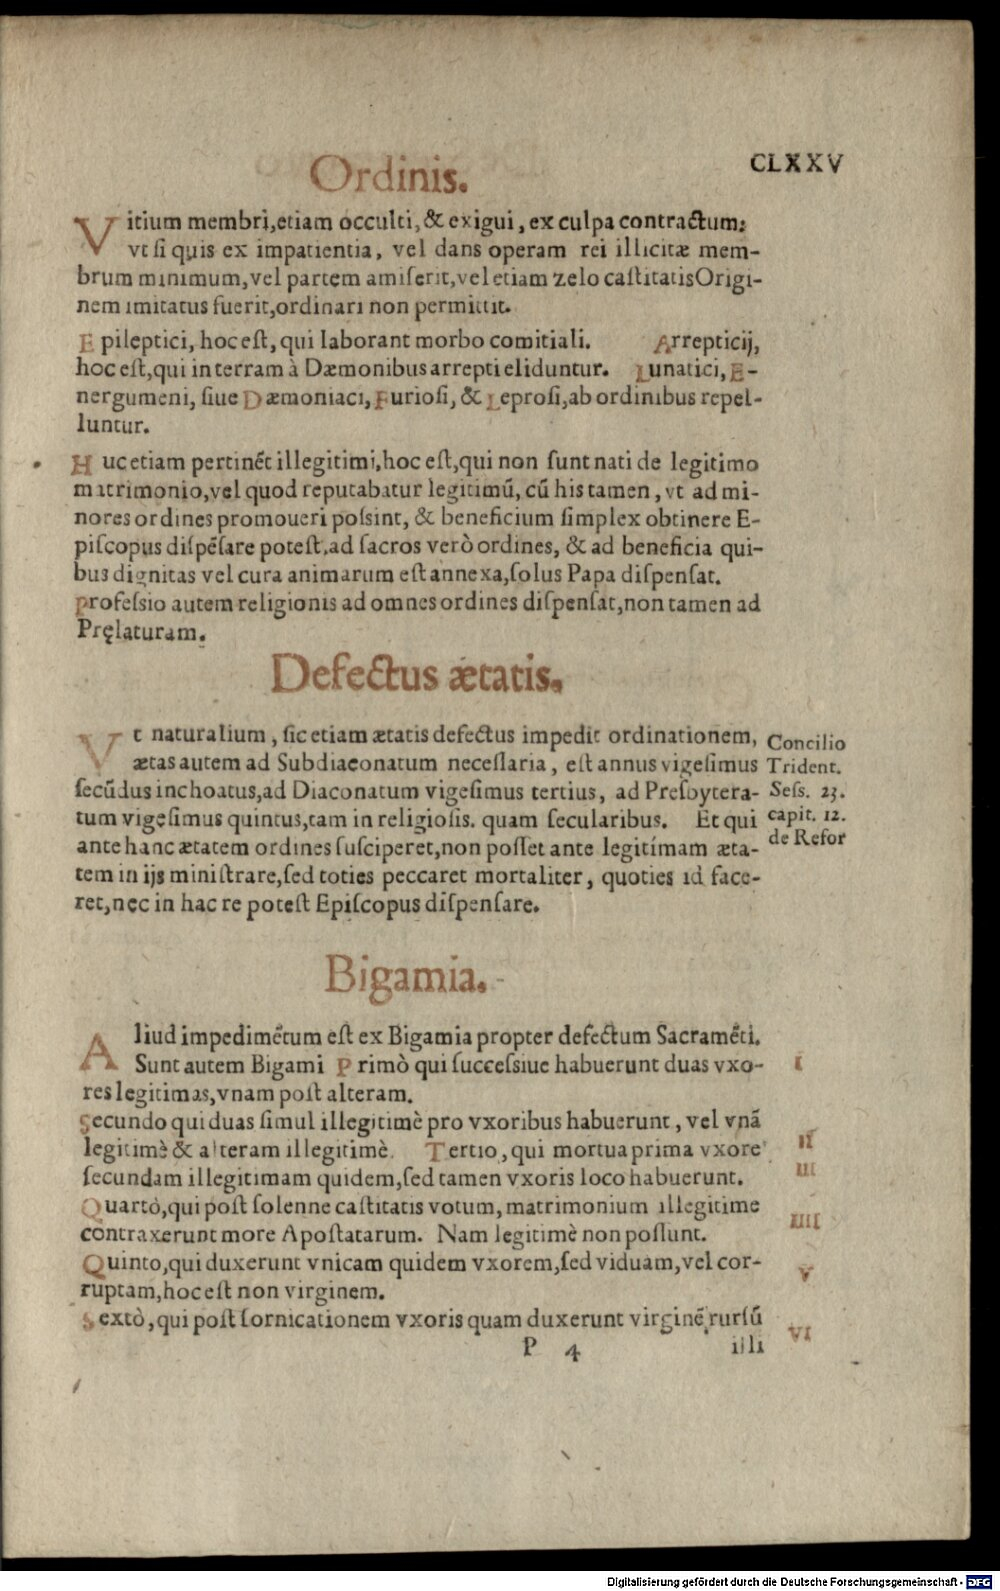 Ordinis.
CLXXV
Vitium membri,etiam occulti,& exigui, ex culpa contractum:
vt si quis ex impatientia, vel dans operam rei illicitæ mem-
brum minimum,vel partem amiserit,vel etiam zelo castitatis Origi-
nem imitatus fuerit,ordinari non permittit.
Epileptici, hoc est, qui laborant morbo comitiali. Arrepticij,
hoc est,qui in terram à Dæmonibus arrepti eliduntur. Lunatici, E-
nergumeni, siue Dæmoniaci, Furiosi, & Leprosi,ab ordinibus repel-
luntur.
Huc etiam pertinẽt illegitimi,hoc est,qui non sunt nati de legitimo
matrimonio,vel quod reputabatur legitimũ, cũ his tamen, vt ad mi-
nores ordines promoueri possint, & beneficium simplex obtinere E-
piscopus dispẽsare potest,ad sacros verò ordines, & ad beneficia qui-
bus dignitas vel cura animarum est annexa,solus Papa dispensat.
Professio autem religionis ad omnes ordines dispensat,non tamen ad
Pręlaturam.
Defectus ætatis.
Vt naturalium, sic etiam ætatis defectus impedit ordinationem,
ætas autem ad Subdiaconatum necessaria, est annus vigesimus
secũdus inchoatus,ad Diaconatum vigesimus tertius, ad Presbytera-
tum vigesimus quintus,tam in religiosis. quam secularibus. Et qui
ante hanc ætatem ordines susciperet,non posset ante legitimam æta-
tem in ijs ministrare,sed toties peccaret mortaliter, quoties id face-
ret,nec in hac re potest Episcopus dispensare.
Concilio
Trident.
Sess. 23.
capit. 12.
de Refor
Bigamia.
Aliud impedimẽtum est ex Bigamia propter defectum Sacramẽti.
Sunt autem Bigami Primò qui successiue habuerunt duas vxo-
res legitimas,vnam post alteram.
Secundo qui duas simul illegitimè pro vxoribus habuerunt, vel vnã
legitimè & alteram illegitimè. Tertio, qui mortua prima vxore
secundam illegitimam quidem,sed tamen vxoris loco habuerunt.
Quartò,qui post solenne castitatis votum, matrimonium illegitime
contraxerunt more Apostatarum. Nam legitimè non possunt.
Quinto,qui duxerunt vnicam quidem vxorem,sed viduam,vel cor-
ruptam,hoc est non virginem.
Sextò,qui post fornicationem vxoris quam duxerunt virginẽ,rursũ
I
II
III
IIII
V
VI
P 4
illi
Digitalisierung gefördert durch die Deutsche Forschungsgemeinschaft - DFG